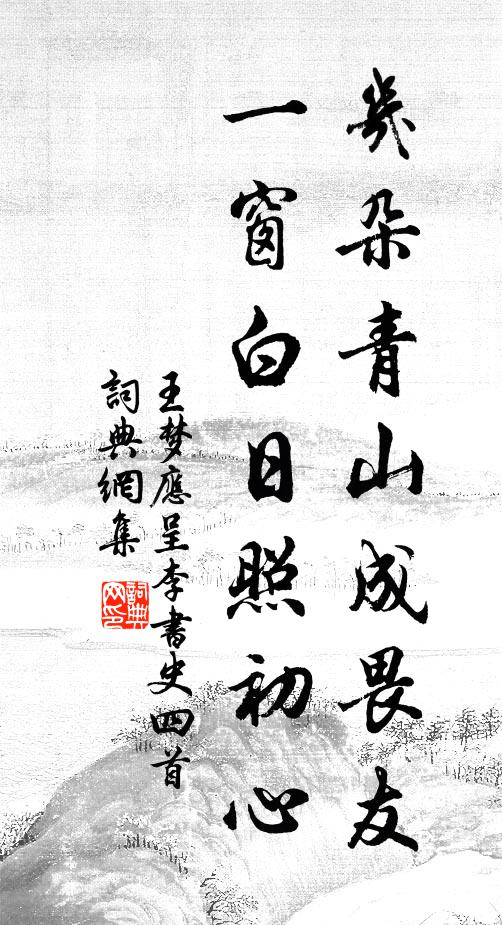 幾朵青山成畏友
一窗白日照初心
王梦應呈李書史四首
詞典網集
詞典网印